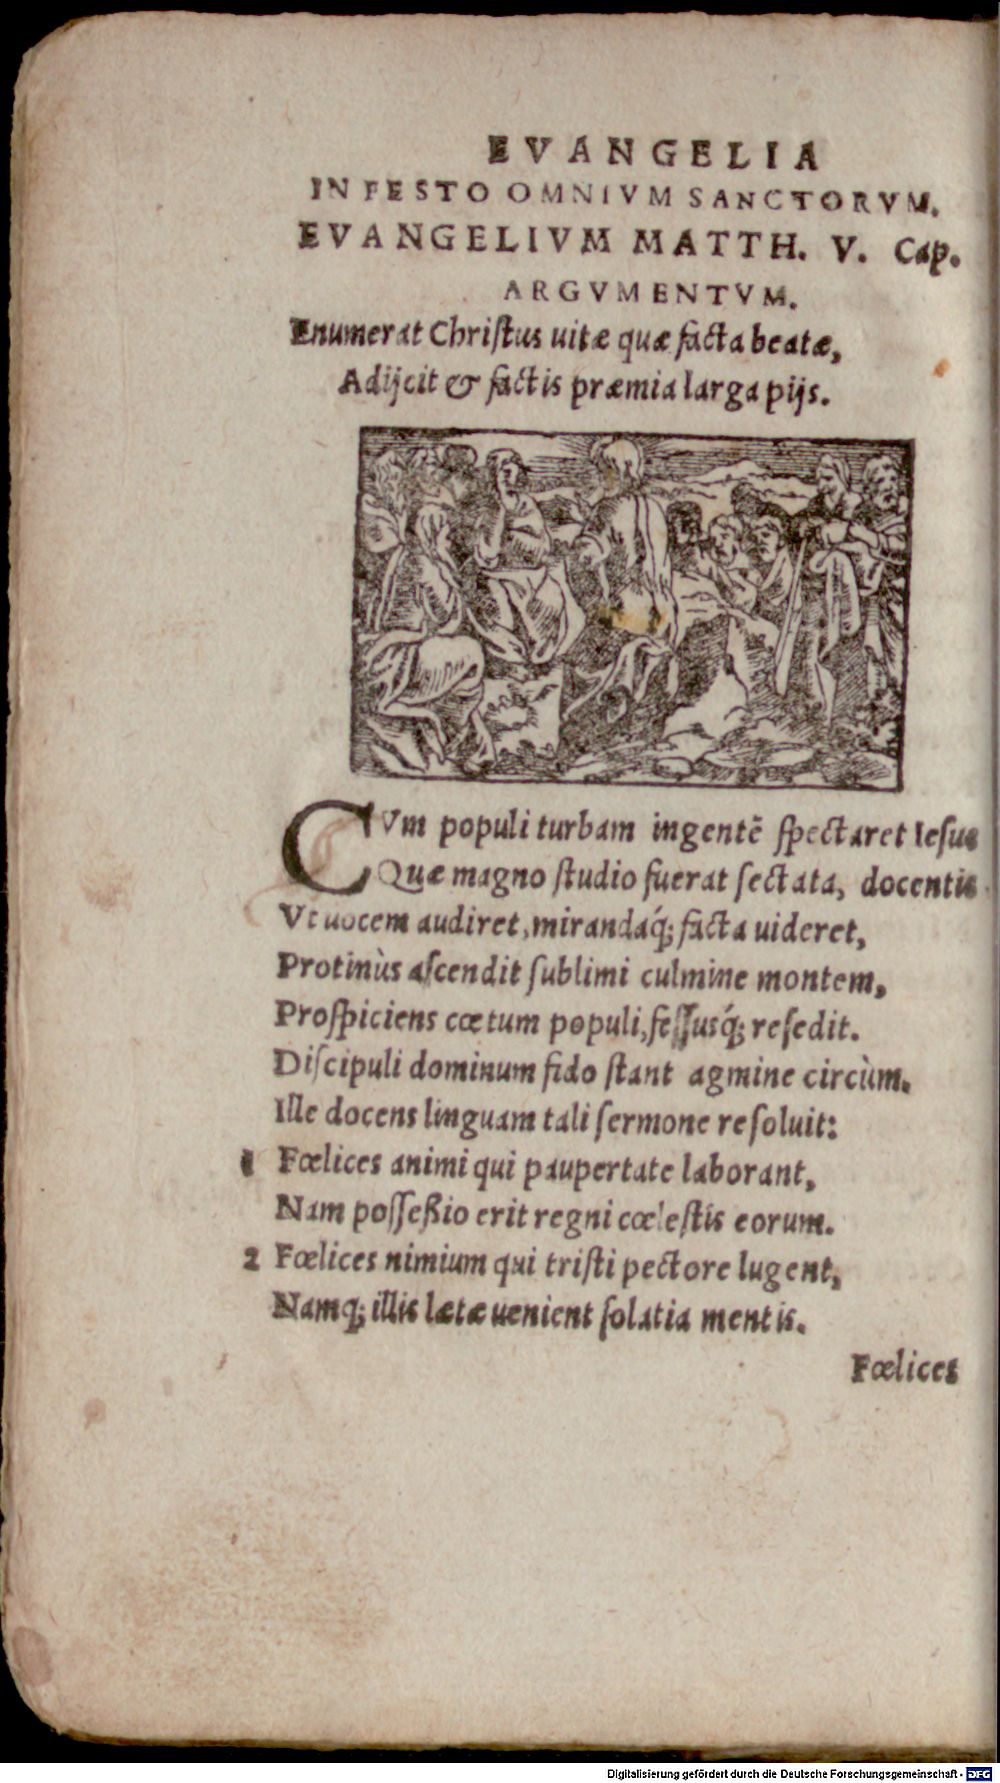 EVANGELIA
IN FESTO OMNIVM SANCTORVM.
EVANGELIVM MATTH. V. Cap.
ARGVMENTVM.
Enumerat Chriſtus uitæ quæ facta beatæ,
Adijcit & factis præmia larga pijs.
CVm populi turbam ingentẽ ſpectaret Ieſus
Quæ magno ſtudio fuerat ſectata, docentis
Vt uocem audiret, mirandaq́; facta uideret,
Protinùs aſcendit ſublimi culmine montem,
Proſpiciens cœtum populi, feſſusq́; reſedit.
Diſcipuli dominum fido ſtant agmine circùm.
Ille docens linguam tali ſermone reſoluit:
1 Fœlices animi qui paupertate laborant,
Nam poſſeßio erit regni cœleſtis eorum.
2 Fœlices nimium qui triſti pectore lugent,
Namq; illis lætæ uenient ſolatia mentis.
Fœlices
Digitalisierung gefördert durch die Deutsche Forschungsgemeinschaft - DFG